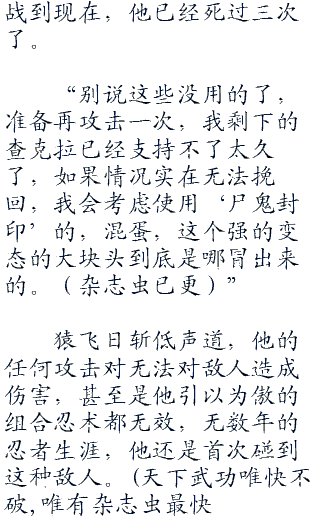 战到现在，他已经死过三次
了。
“别说这些没用的了，
准备再攻击一次，我剩下的
查克拉已经支持不了太久
了，如果情况实在无法挽
回，我会考虑使用‘尸鬼封
印’的，混蛋，这个强的变
态的大块头到底是哪冒出来
的。（杂志虫已更）”
猿飞日斩低声道，他的
任何攻击对无法对敌人造成
伤害，甚至是他引以为傲的
组合忍术都无效，无数年的
忍者生涯，他还是首次碰到
这种敌人。(天下武功唯快不
破,唯有杂志虫最快